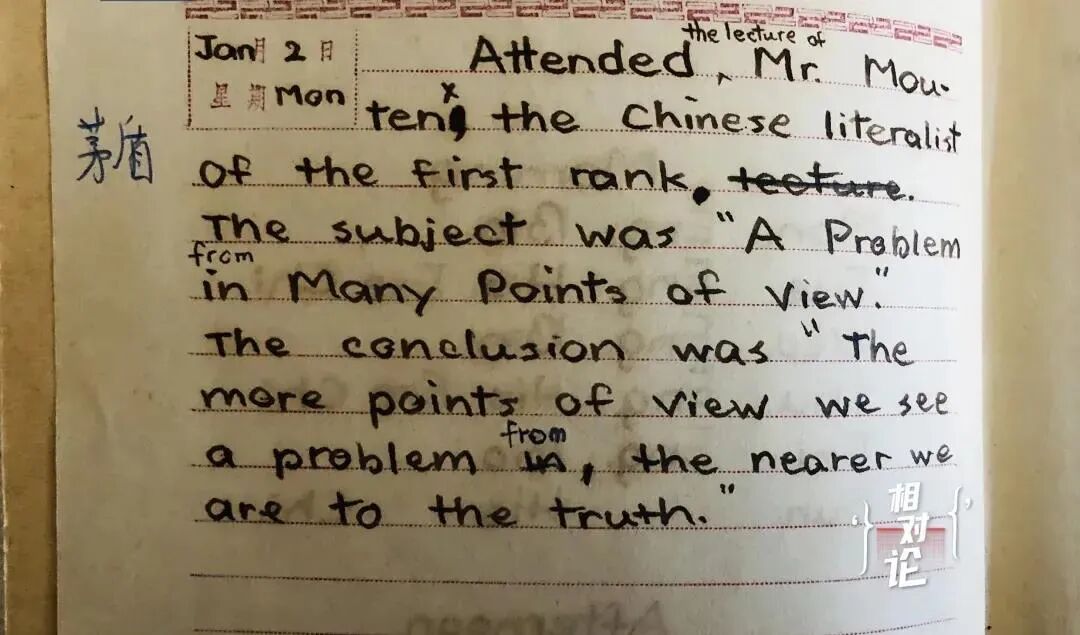 Jan月 2日
星期Mon
the lecture of
Attended, Mr. Mou-
x
ten, the Chinese literalist
茅盾
of the first rank. lecture.
The subject was "A Problem
from
in Many Points of View."
The conclusion was "The
more points of view we see
from
a problem in, the nearer we
are to the truth."
相对论